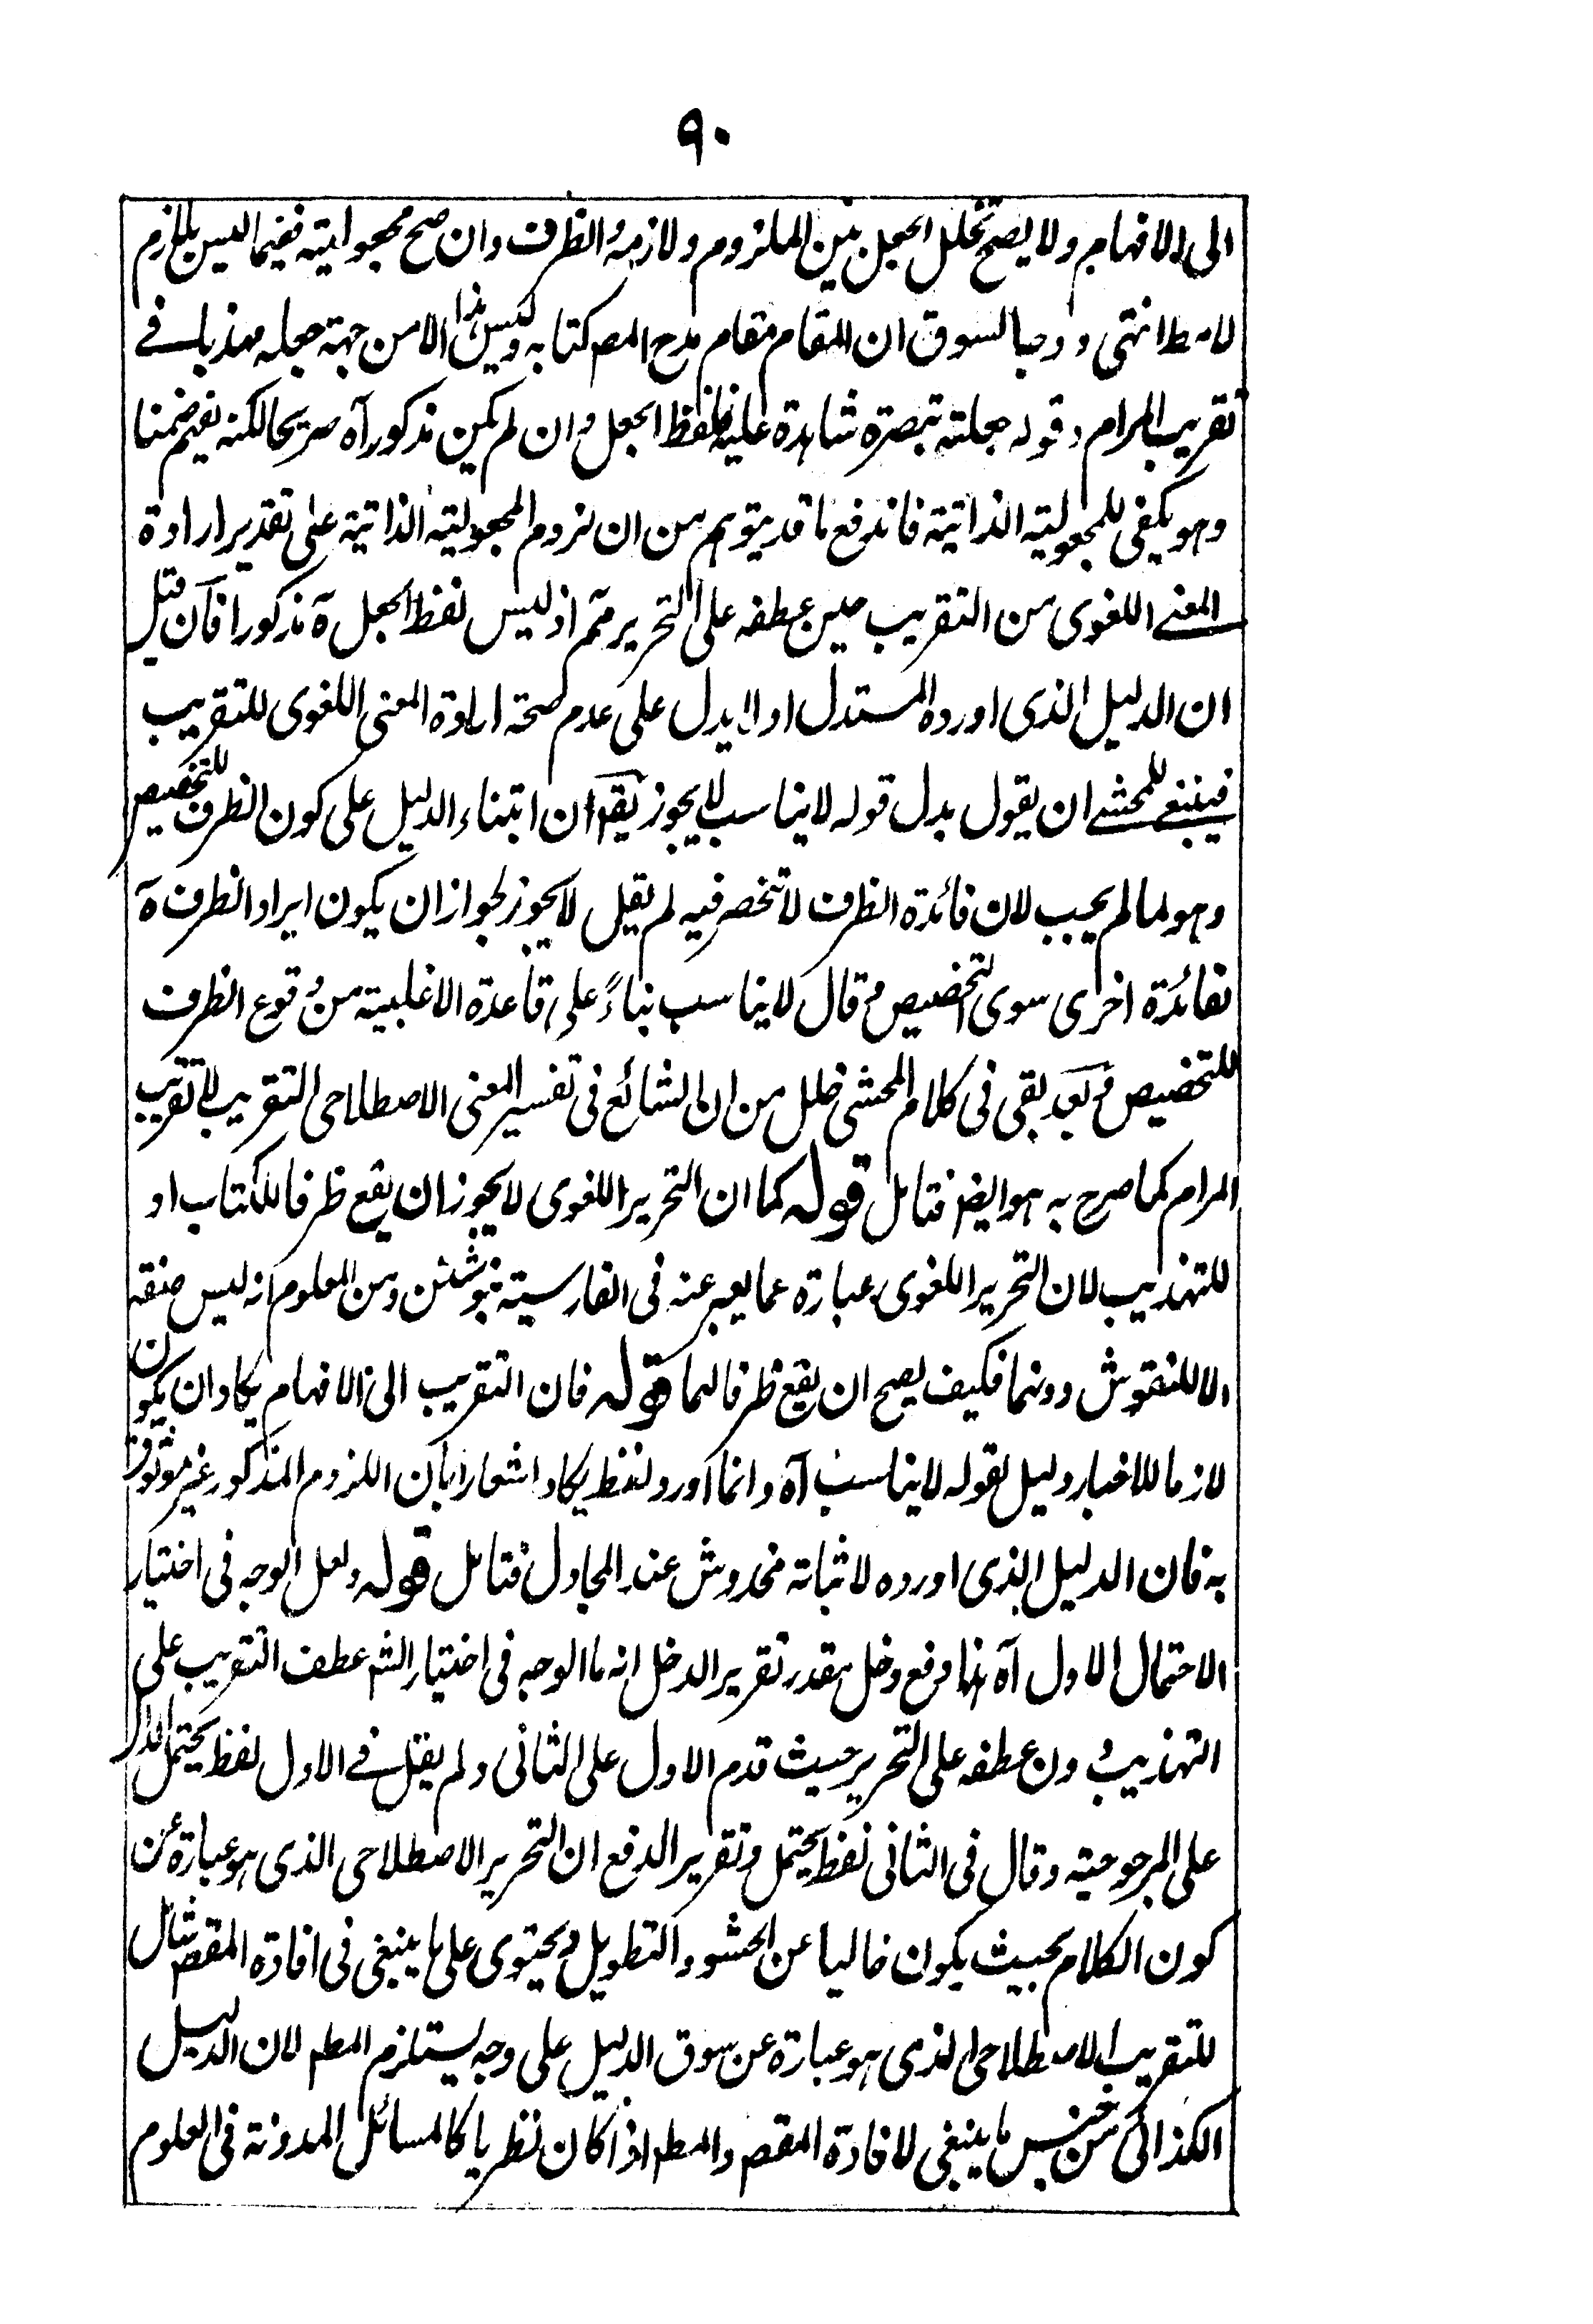 ٩٠
الى الافهام ولا يصح تخلل الجعل بين الملزوم ولازمه والظرف وان صح مجعوليته ففيما ليس بلازم
لا مط انتهى ووجبا لسوق ان المقام مقام مدح المصـ كتابه وليس هذا الا من جهة جعله مهذبا فے
تقريب المرام وقوله جعلته تبصرة شاهدة عليه فلفظ الجعل وان لم يكن مذكورآه صريحا لكنه يفهم ضمنا
وهو يكفى للمجعولية الذاتية فاندفع ما قد يتوهم من ان لزوم المجعولية الذاتية على تقدير ارادة
المعنے اللغوى من التقريب حين عطفه على التحرير متم اذ ليس لفظ الجعل ة مذكورا فآن قيل
ان الدليل الذى اورده المستدل اولا يدل على عدم صحة ارادة المعنى اللغوى للتقريب
فينبغے للمحشے ان يقول بدل قوله لا يناسب لا يجوز يقآ ان ابتناء الدليل على كون الظرف للتخصيص
وهو لما لم يجب لان فائدة الظرف لا تنحصر فيه لم يقل لا يجوز لجواز ان يكون ايراد الظرف ة
لفائدة اخرى سوى التخصيص وقال لا يناسب بناءً على قاعدة الاغلبية من وقوع الظرف
للتخصيص وبعد بقى فى كلام المحشى خلل من ان الشائع فى تفسير المعنى الاصطلاحى التقريب لا تقريب
المرام كما صرح به هو ايضـ فتامل قوله كما ان التحرير اللغوى لا يجوز ان يقع ظرفا للكتاب او
للتهذيب لان التحرير اللغوى عبارة عما يعبر عنه فى الفارسية بنوشتن ومن المعلوم انه ليس صفة
الا للنقوش دونهما فكيف يصح ان يقع ظرفا لهما قوله فان التقريب الى الافهام يكاد ان يكون
لازما للاخبار دليل لقوله لا يناسب آه وانما اورد لفظ يكاد اشعارا بان اللزوم المذكور غير موثوق
به فان الدليل الذى اورده لاثباته مخدوش عند المجادل فتامل قوله ولعل الوجه فى اختيار
الاحتمال الاول آه هذا دفع دخل مقدر تقرير الدخل انه ما الوجه فى اختيار الشـ عطف التقريب على
التهذيب دون عطفه على التحرير حيث قدم الاول على الثانى ولم يقل فے الاول لفظ يحتمل الدال
على المرجوحية وقال فى الثانى لفظ يحتمل وتقرير الدفع ان التحرير الاصطلاحى الذى هو عبارة عن
كون الكلام بحيث يكون خاليا عن الحشو والتطويل ويحتوى على ما ينبغى فى افادة المقصـ شامل
للتقريب الاصطلاحى الذى هو عبارة عن سوق الدليل على وجه يستلزم المطـ لان الدليل
الكذائى من جنس ما ينبغى لافادة المقصـ والمطـ اذا كان نظريا كالمسائل المدونة فى العلوم